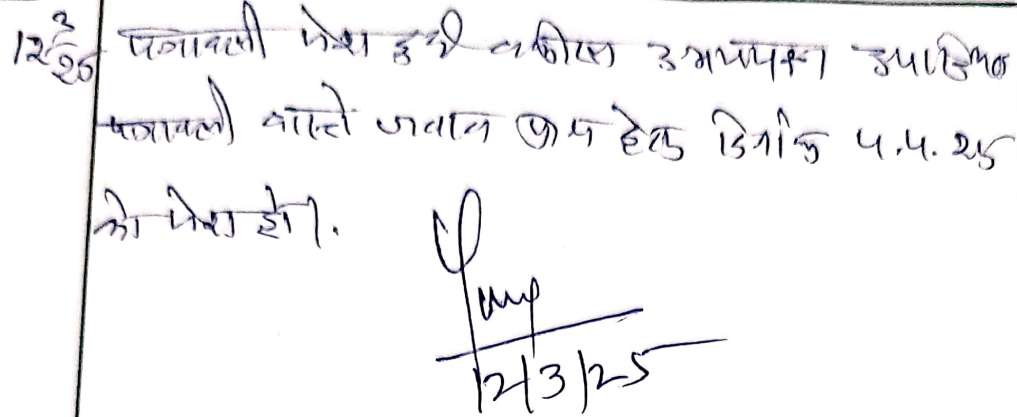 12/3/25 पत्रावली पेश हुयी वकील उभयपक्ष उपस्थित
पत्रावली वास्ते जवाब हेतु दिनांक 4.4.25
को पेश हो।
12/3/25